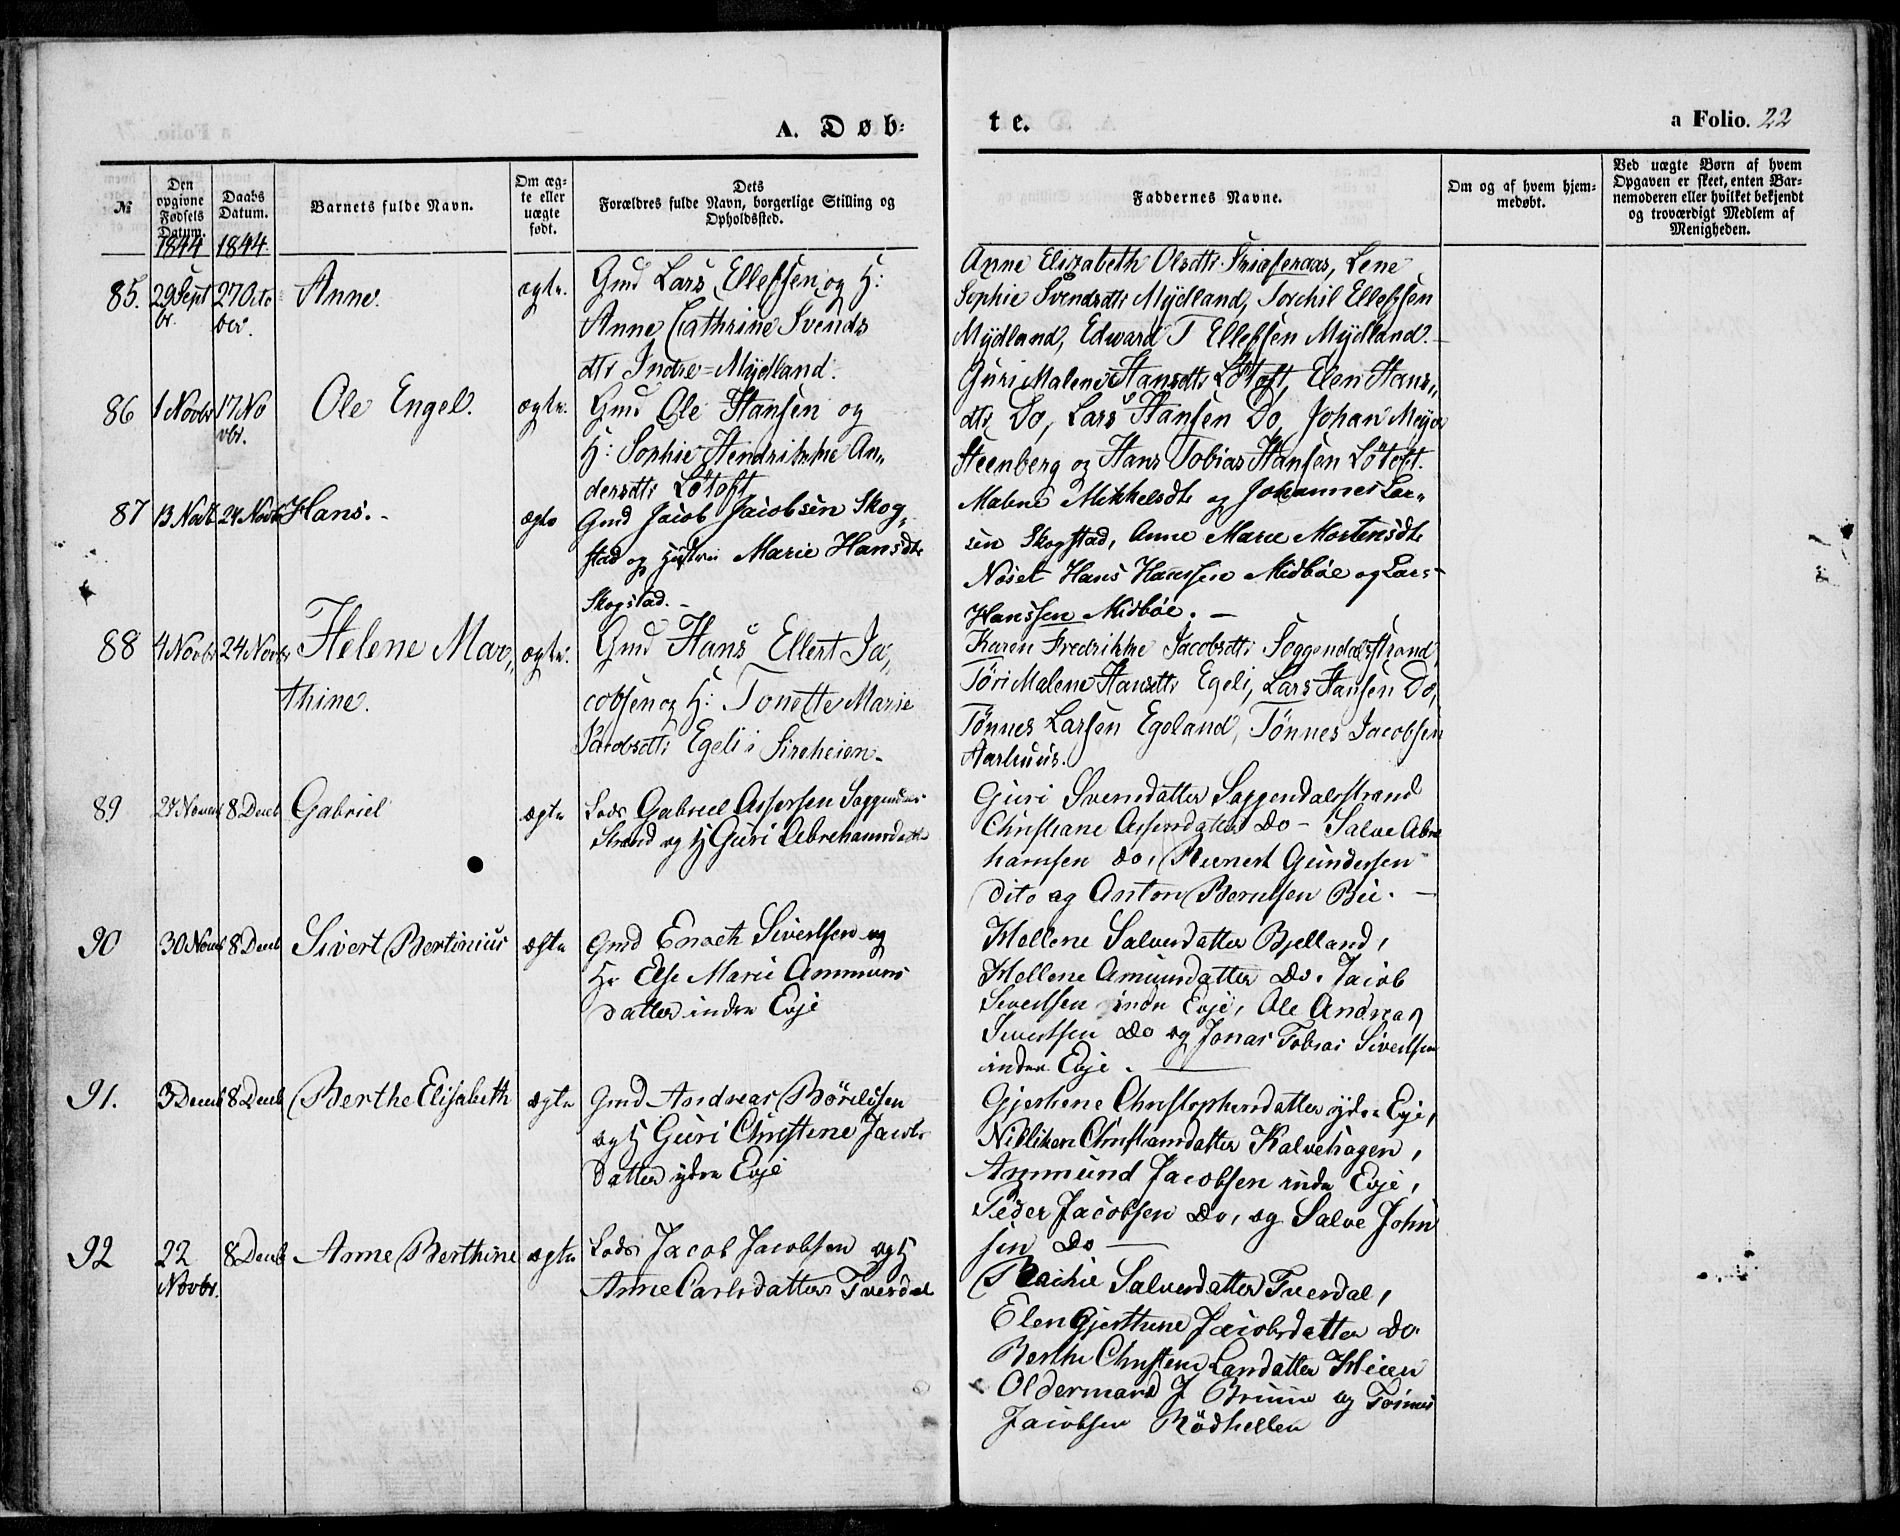 A. Døb-
te.
a Folio. 22
№
Den opgivne Fødsels Datum.
Daabs Datum.
Barnets fulde Navn.
Om ægte eller uægte født.
Dets Forældres fulde Navn, borgerlige Stilling og Opholdssted.
Faddernes Navne.
Om og af hvem hjemmedøbt.
Ved uægte Børn af hvem Opgaven er skeet, enten Barnemoderen eller hvilket bekjendt og troværdigt Medlem af Menigheden.
1844 1844.
85. 29 Sept br. 27 Octo ber. Anne. ægte.
Gmd Lars Ellefsen og H:
Anne Cathrine Svends
dtr Indre-Mydland.
Anne Elizabeth Olsdtr. Lene
Sophie Svendsdtr Mydland, Torchil Ellefsen
Mydland, Edward T Ellefsen Mydland.
86 1 Novbr 17 No vbr. Ole Engel. ægte.
Gmd Ole Hansen og
H: Sophie Hendrikke An„
dersdtr Løtoft
Guri Malene Hansdtr Løtoft, Elen Hans„
dtr Do, Lars Hansen Do, Johan Meyer
Steenberg og Hans Tobias Hansen Løtoft.
87 13 Novb 24 Novb Hans. ægte
Gmd Jacob Jacobsen Skog„
stad og Hustru Marie Hansdtr
Skogstad.
Malene Mikkelsdtr og Johannes Lar„
sen Skogstad, Anne Marie Mortensdtr
Nøset Hans Hanssen Midbøe og Lars
Hanssen Midbøe.
88 4 Novbr 24 Novbr Helene Mar„
thine. ægte.
Gmd Hans Ellert Ja„
cobsen og H: Tonette Marie
Jacobsdtr Egeli i Sireheien
Karen Fredrikke Jacobsdtr Soggendalsstrand
Tøri Malene Hansdtr Egeli, Lars Hansen Do,
Tønnes Larsen Egeland, Tønnes Jacobsen
Aarhuus.
89 8 Decb Gabriel ægte
Lods Gabriel Assersen Soggendals
Strand og H Guri Abrahamsdatter
Guri Svensdatter Soggendalsstrand
Christiane Assersdatter Do - Salve Abra
hamsen do, Reinert Gundersen
dito og Anton Berntsen Bie.
90 30 Novb 8 Decb Sivert Bertinius ægte
Gmd Enoch Sivertsen og
H Else Marie Ammuns
datter indre Evje
Hellene Salvesdatter Bjelland,
Hellene Amunsdatter Do. Jacob
Sivertsen indre Evje, Ole Andreas
Sivertsen Do og Jonas Tobias Sivertsen
indre Evje.
91. 3 Decb 8 Decb Berthe Elisabeth ægte
Gmd Andreas Børildsen
og H Guri Christine Jacobs
datter ydre Evje
Gjertine Christophersdatter ydre Evje,
Christiansdatter Kalvehagen,
Ammund Jacobsen indre Evje,
Peder Jacobsen Do, og Salve John
sen Do
92 22 Novbr. 8 Decb Anne Berthine ægte
Lods Jacob Jacobsen og H
Anne Carlsdatter Tverdal
Salvesdatter Tverdal,
Elen Gjerthine Jacobsdatter Do
Berthe Christine Larsdatter
Oldermand J og Tønnes
Jacobsen Rødhellen